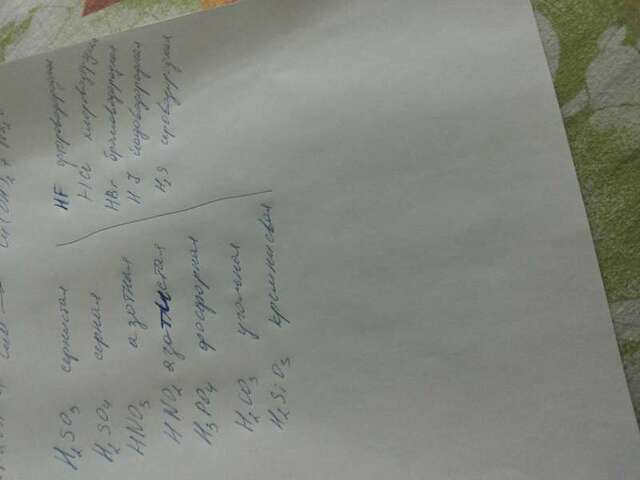 H₂SO₃ сернистая
H₂SO₄ серная
HNO₃ азотная
HNO₂ азотистая
H₃PO₄ фосфорная
H₂CO₃ угольная
H₂SiO₃ кремниевая
HF фтороводородная
HCl хлороводородная
HBr бромоводородная
HI йодоводородная
H₂S сероводородная